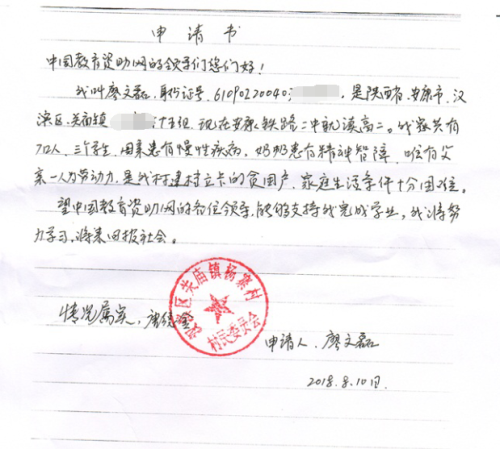 申请书
中国教育资助网的领导们您们好！
我叫廖文磊，身份证号，61090220040，是陕西省，安康市，汉
滨区，关庙镇 十五组，现在安康铁路二中就读高二。我家共有
7口人，三个学生，母亲患有慢性疾病，奶奶患有精神智障，唯有父
亲一人为劳动力，是我村建档立卡的贫困户，家庭生活条件十分困难。
望中国教育资助网的各位领导，能够支持我完成学业，我将努
力学习，将来回报社会。
汉滨区关庙镇杨寨村
村民委员会
情况属实，
申请人：廖文磊
2018.8.10日.